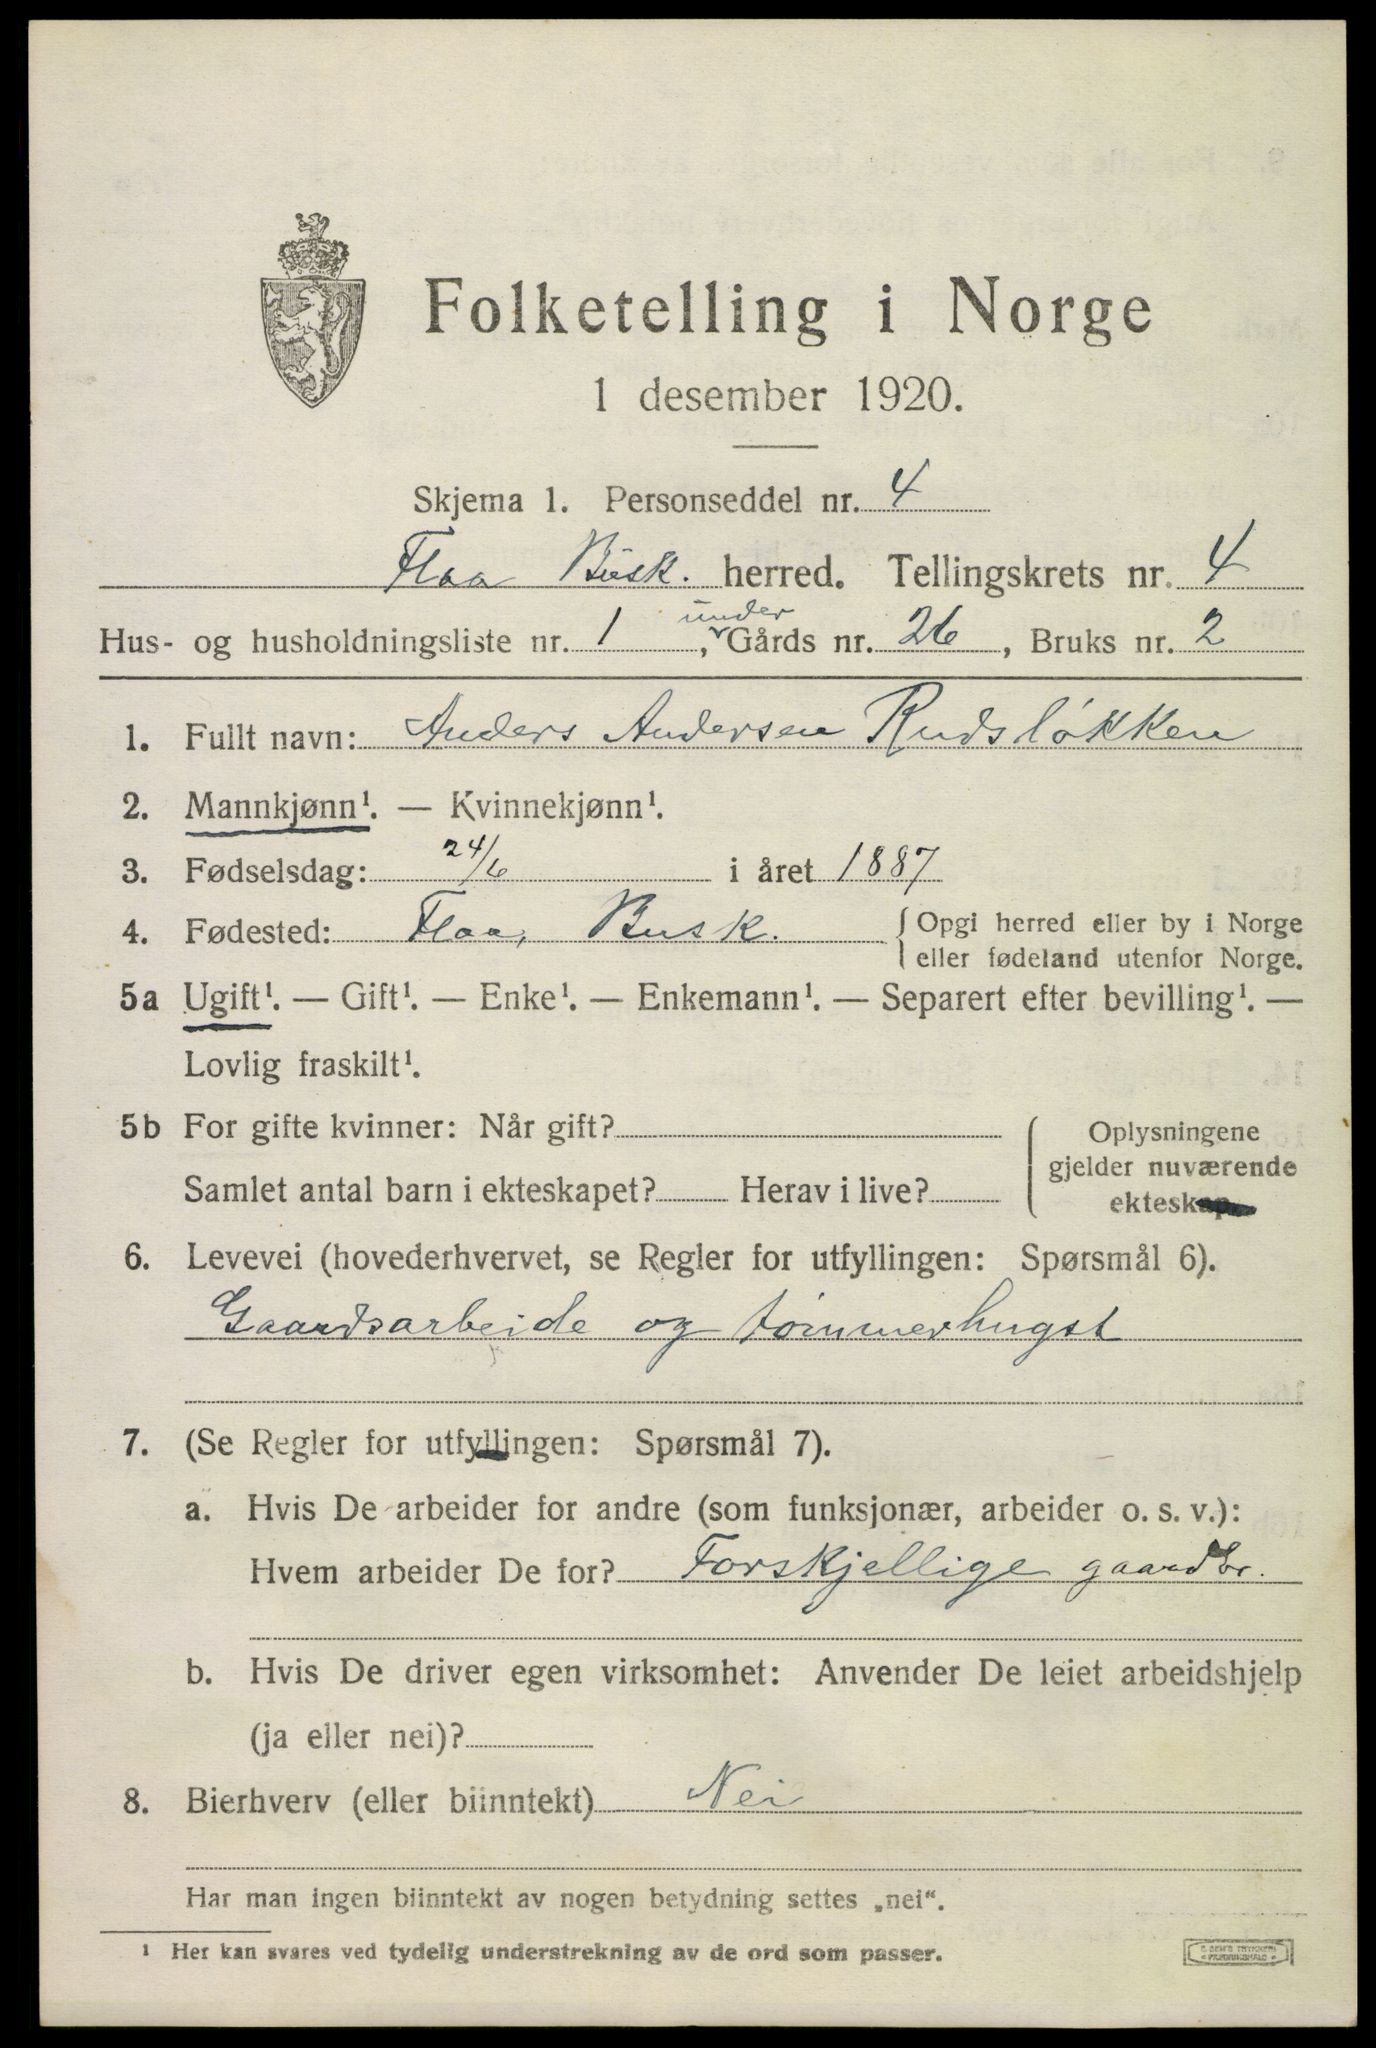 Folketelling i Norge
1 desember 1920.
Skjema 1. Personseddel nr. 4
Flaa Busk. herred. Tellingskrets nr. 4
under
Hus- og husholdningsliste nr. 1, Gårds nr. 26, Bruks nr. 2
1. Fullt navn: Anders Andersen Rudsløkken
2. Mannkjønn¹. — Kvinnekjønn¹.
3. Fødselsdag: 24/6 i året 1887
4. Fødested: Flaa, Busk. { Opgi herred eller by i Norge
eller fødeland utenfor Norge.
5a Ugift¹. — Gift¹. — Enke¹. — Enkemann¹. — Separert efter bevilling¹. —
Lovlig fraskilt¹.
5b For gifte kvinner: Når gift?
Samlet antal barn i ekteskapet? Herav i live?
Oplysningene
gjelder nuværende
ekteskap.
6. Levevei (hovederhvervet, se Regler for utfyllingen: Spørsmål 6).
Gaardsarbeide og tømmerhugst
7. (Se Regler for utfyllingen: Spørsmål 7).
a. Hvis De arbeider for andre (som funksjonær, arbeider o. s. v.):
Hvem arbeider De for? Forskjellige gaardbr.
b. Hvis De driver egen virksomhet: Anvender De leiet arbeidshjelp
(ja eller nei)?
8. Bierhverv (eller biinntekt) Nei
Har man ingen biinntekt av nogen betydning settes „nei“.
¹ Her kan svares ved tydelig understrekning av de ord som passer.